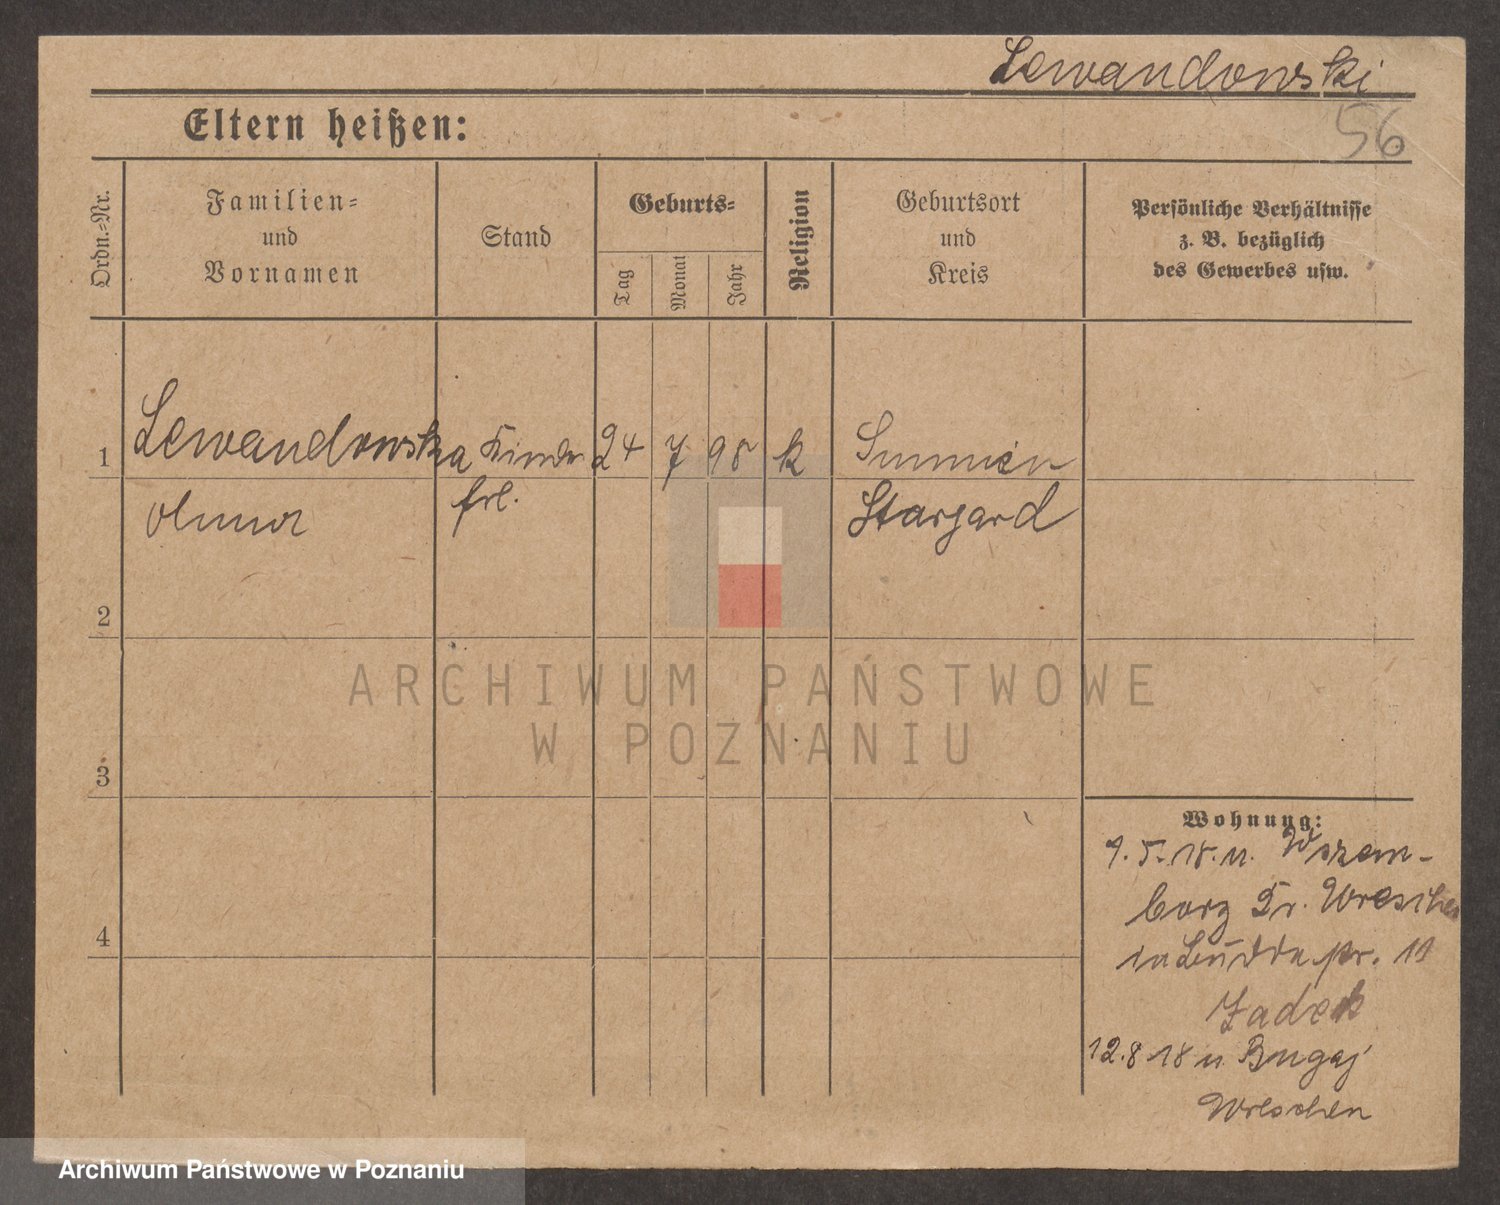 Lewandowski
56
Eltern heißen:
Ordn.-Nr.
Familien-
und
Vornamen
Stand
Geburts-
Tag
Monat
Jahr
Religion
Geburtsort
und
Kreis
Persönliche Verhältnisse
z. B. bezüglich
des Gewerbes usw.
1 Lewandowska Kinder 24 7 98 k Summin
Anna frl. Stargard
2
3
4
Wohnung:
1.5.18. n. Wszem-
borz Kr. Wreschen
pr. 11
Zadek
12.8 18 n Bugaj
Wreschen
ARCHIWUM PAŃSTWOWE
W POZNANIU
Archiwum Państwowe w Poznaniu